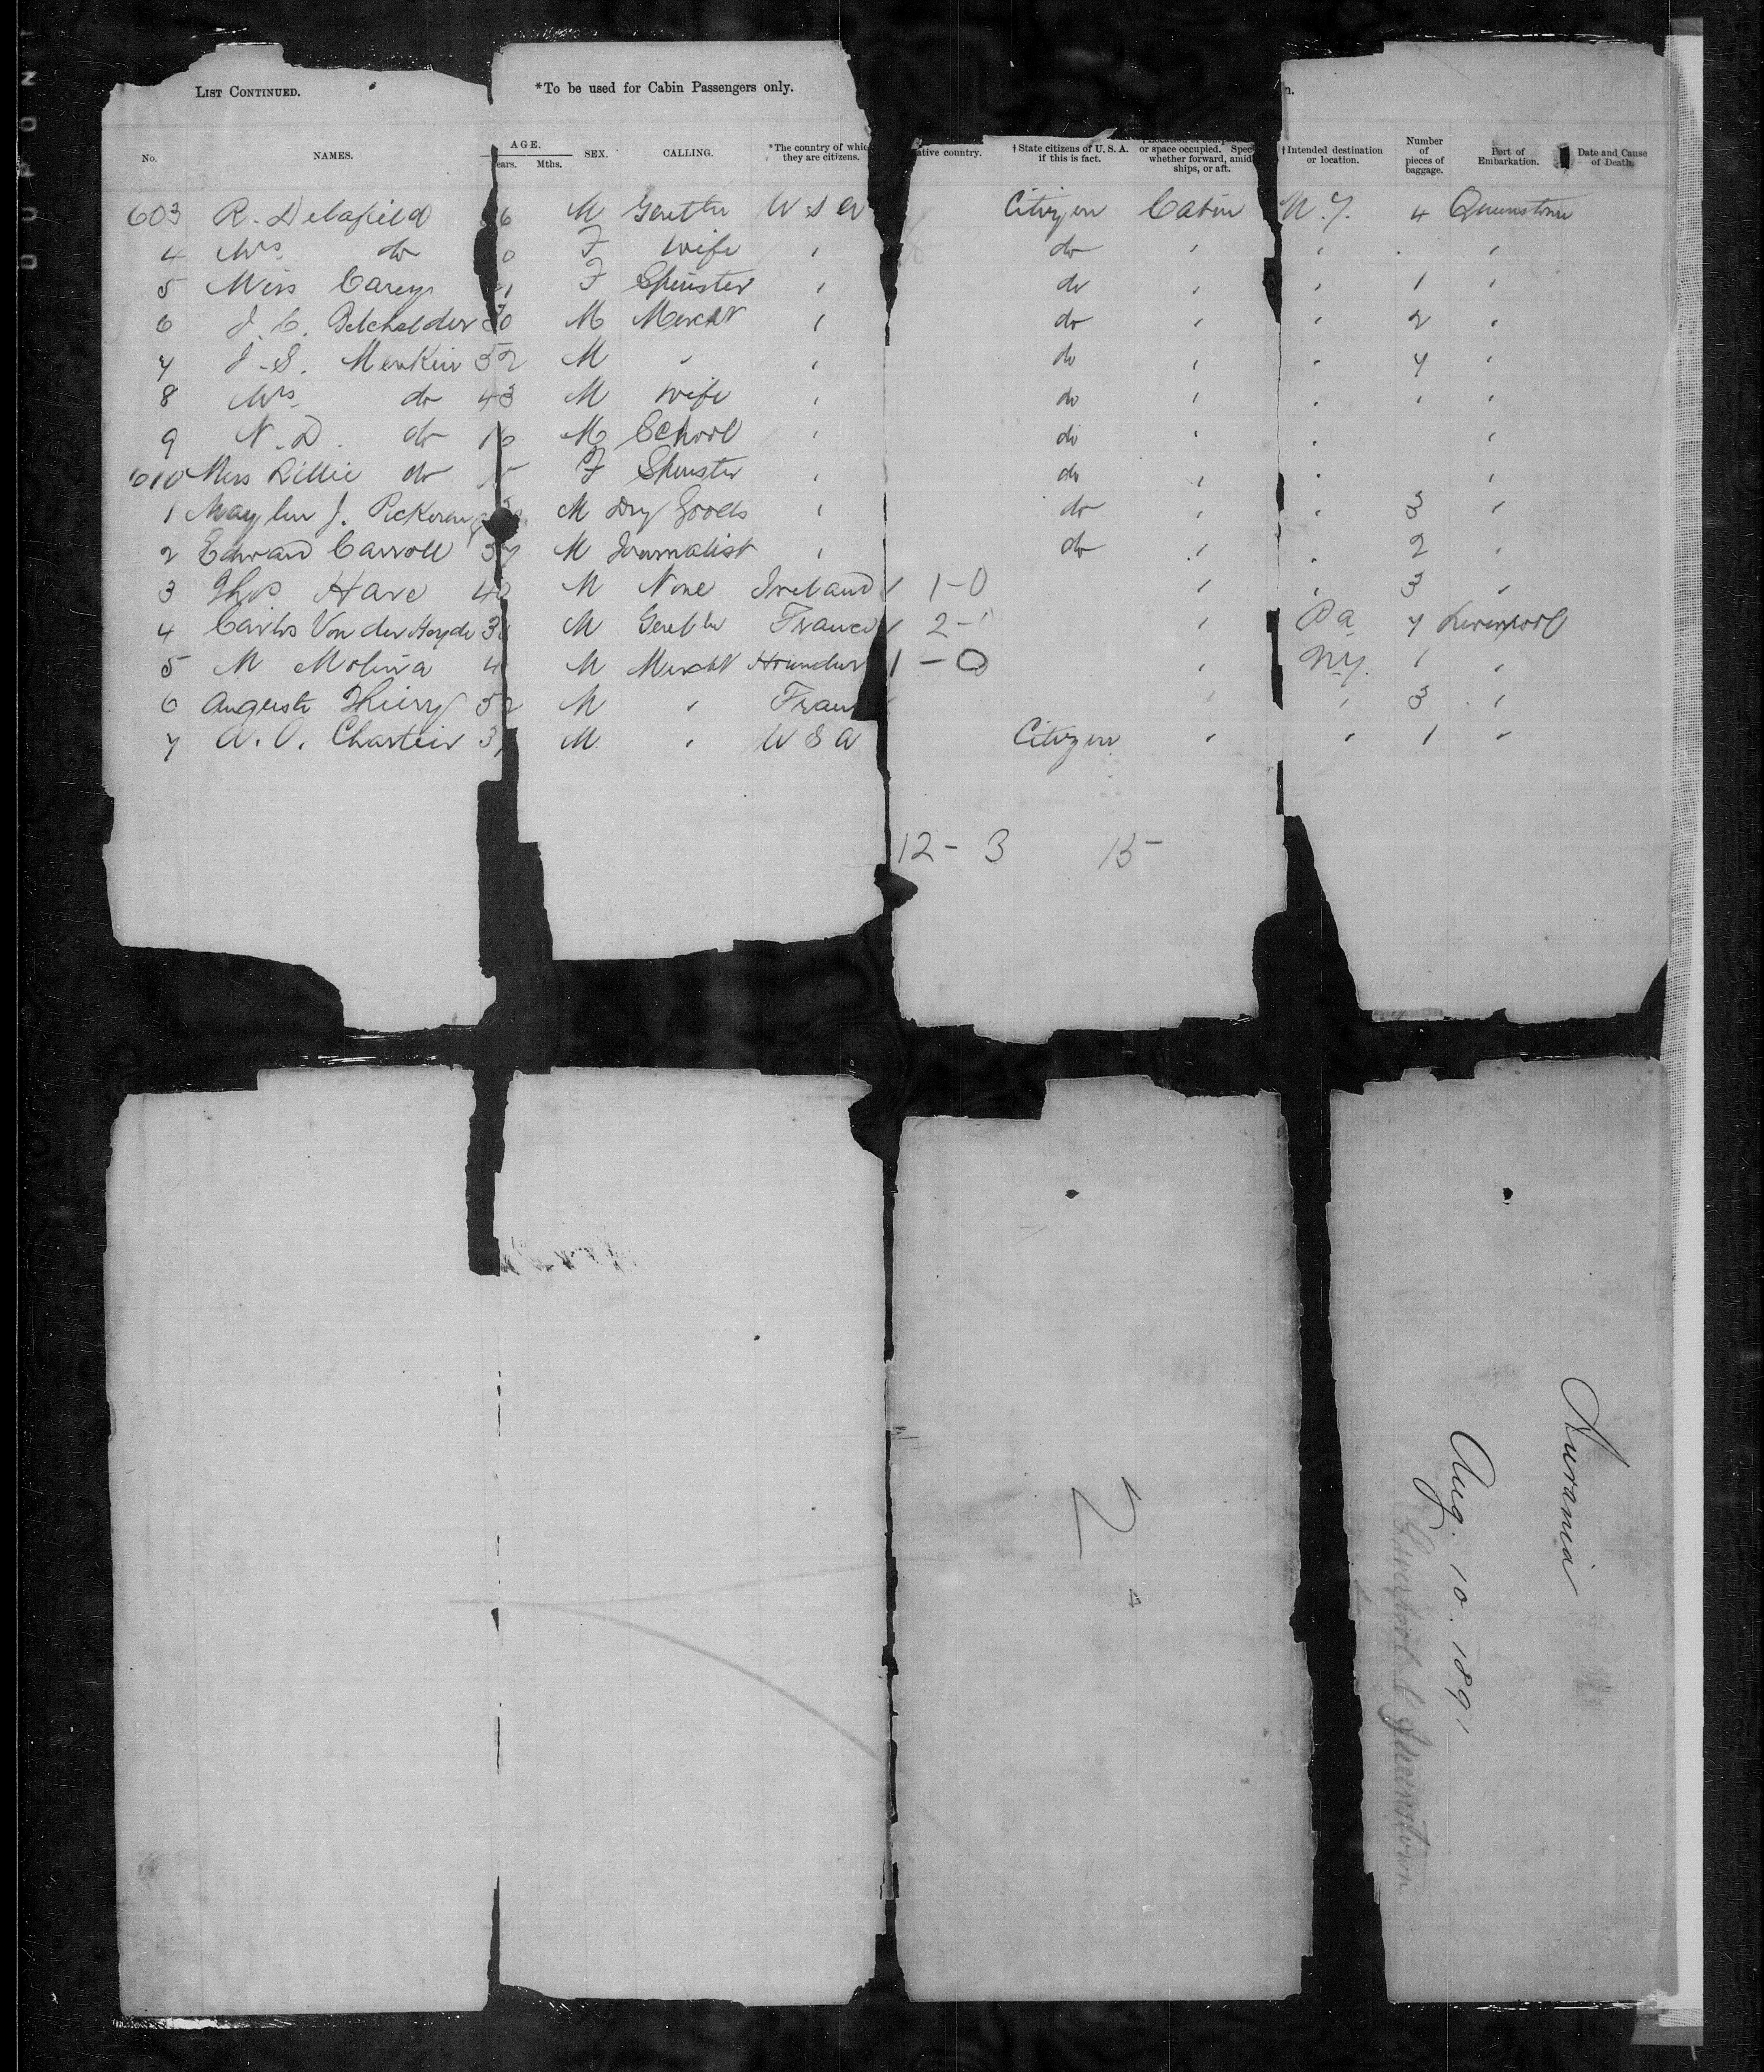 LIST CONTINUED. *To be used for Cabin Passengers only. n.
No. NAMES. AGE. ears. Mths. SEX. CALLING. *The country of whic they are citizens. ative country. †State citizens of U. S. A. if this is fact. or space occupied. Spec whether forward, amid ships, or aft. †Intended destination or location. Number of pieces of baggage. Port of Embarkation. Date and Cause of Death.
603 R. Delafield 6 M U S A Citizen Cabin N.Y. 4 Queenstown
4 Mrs. do 0 F Wife " do " " "
5 Miss Carey 1 F Spinster " do " " 1 "
6 J. C. 30 M Mercht " do " " 2 "
7 J. S. Menken 52 M " " do " " 7 "
8 Mrs. do 43 M Wife " do " " " "
9 N. D. do 16 M School " do " " "
610 Miss Lillie do F Spinster " do " " "
1 J. Pickering M Dry Goods " do " " 3 "
2 Edward Carroll 37 M Journalist " do " " 2 "
3 Thos Hare 4 M None Ireland 1-0 " " 3 "
4 Carlos Von der Heyde 3 M France 2- " Pa 7 Liverpool
5 M Molina 4 M Mercht 1-0 " N.Y. 1 "
6 Auguste Thiery 52 M " Fran " " 3 "
7 A. O. 3 M " U S A Citizen " " 1 "
12- 3 15-
2
Aurania
Aug. 10. 1891
Liverpool & Queenstown